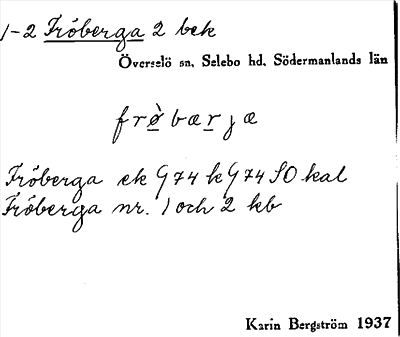 1-2 Fröberga 2 bek
Överselö sn. Selebo hd. Södermanlands län
frø̀bærjæ
Fröberga ek G74 k G74 SO kal
Fröberga nr. 1 och 2 kb
Karin Bergström 1937